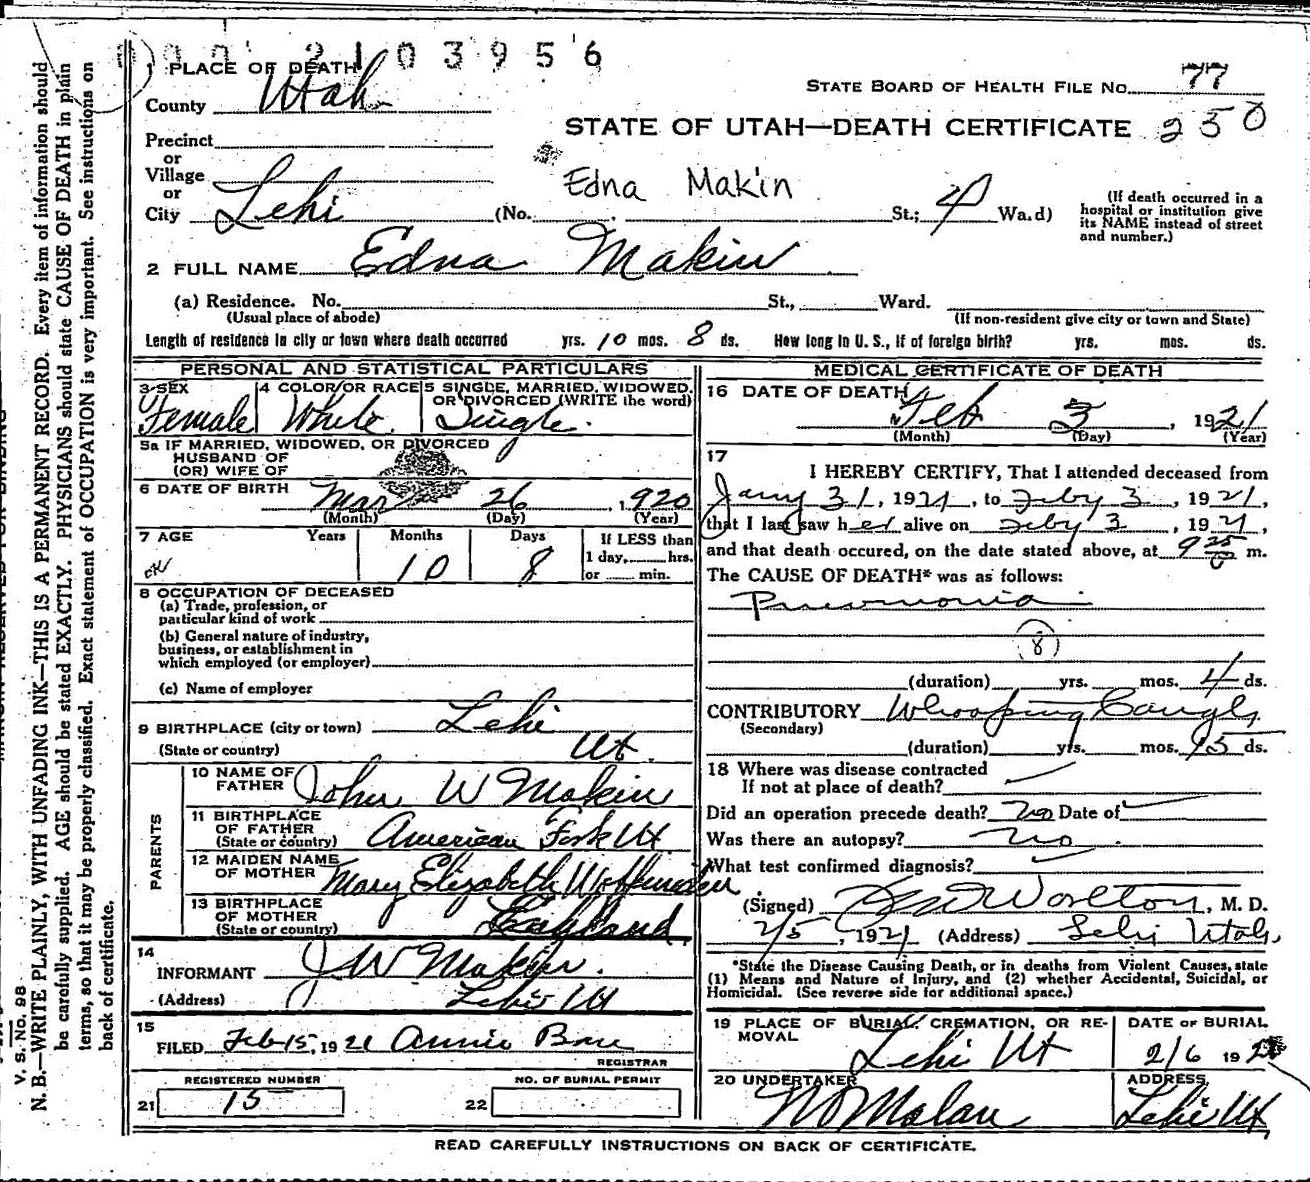 2103956
1 PLACE OF DEATH
STATE BOARD OF HEALTH FILE No. 77
County Utah
STATE OF UTAH—DEATH CERTIFICATE 250
Precinct
or
Village
or
City Lehi
Edna Makin
(No. St.; 4 Wa.d)
(If death occurred in a hospital or institution give its NAME instead of street and number.)
2 FULL NAME Edna Makin
(a) Residence. No. St., Ward.
(Usual place of abode) (If non-resident give city or town and State)
Length of residence in city or town where death occurred yrs. 10 mos. 8 ds. How long in U. S., if of foreign birth? yrs. mos. ds.
PERSONAL AND STATISTICAL PARTICULARS
3 SEX Female
4 COLOR OR RACE White
5 SINGLE, MARRIED, WIDOWED, OR DIVORCED (WRITE the word) Single.
5a IF MARRIED, WIDOWED, OR DIVORCED
HUSBAND OF
(OR) WIFE OF
6 DATE OF BIRTH Mar 26, 1920
(Month) (Day) (Year)
7 AGE Years Months Days If LESS than
1 day, hrs.
or min.
10 8
8 OCCUPATION OF DECEASED
(a) Trade, profession, or
particular kind of work
(b) General nature of industry,
business, or establishment in
which employed (or employer)
(c) Name of employer
9 BIRTHPLACE (city or town) Lehi
(State or country) Ut.
PARENTS
10 NAME OF FATHER John W Makin
11 BIRTHPLACE OF FATHER (State or country) American Fork Ut
12 MAIDEN NAME OF MOTHER Mary Elizabeth
13 BIRTHPLACE OF MOTHER (State or country)
14
INFORMANT J W Makin.
(Address) Lehi Ut
15
FILED Feb 15, 1921 Annie
REGISTRAR
REGISTERED NUMBER NO. OF BURIAL PERMIT
21 15 22
MEDICAL CERTIFICATE OF DEATH
16 DATE OF DEATH
Feb 3, 1921
(Month) (Day) (Year)
17
I HEREBY CERTIFY, That I attended deceased from
Jany 31, 1921, to Feby 3, 1921,
that I last saw her alive on Feby 3, 1921,
and that death occured, on the date stated above, at 9 25 m.
The CAUSE OF DEATH* was as follows:
Pneumonia
8
(duration) yrs. mos. 4 ds.
CONTRIBUTORY Whooping Cough
(Secondary)
(duration) yrs. mos. 15 ds.
18 Where was disease contracted
If not at place of death?
Did an operation precede death? No Date of
Was there an autopsy? No.
What test confirmed diagnosis?
(Signed) Worlton, M. D.
2/5, 1921 (Address) Lehi Utah.
*State the Disease Causing Death, or in deaths from Violent Causes, state
(1) Means and Nature of Injury, and (2) whether Accidental, Suicidal, or
Homicidal. (See reverse side for additional space.)
19 PLACE OF BURIAL, CREMATION, OR REMOVAL Lehi Ut
DATE OF BURIAL 2/6 192
20 UNDERTAKER
ADDRESS Lehi Ut
READ CAREFULLY INSTRUCTIONS ON BACK OF CERTIFICATE.
V. S. No. 98
N. B.—WRITE PLAINLY, WITH UNFADING INK—THIS IS A PERMANENT RECORD. Every item of information should
be carefully supplied. AGE should be stated EXACTLY. PHYSICIANS should state CAUSE OF DEATH in plain
terms, so that it may be properly classified. Exact statement of OCCUPATION is very important. See instructions on
back of certificate.